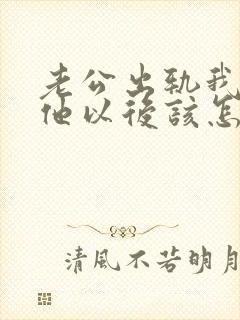 老公出轨我
他以後該怎
清風不若明月